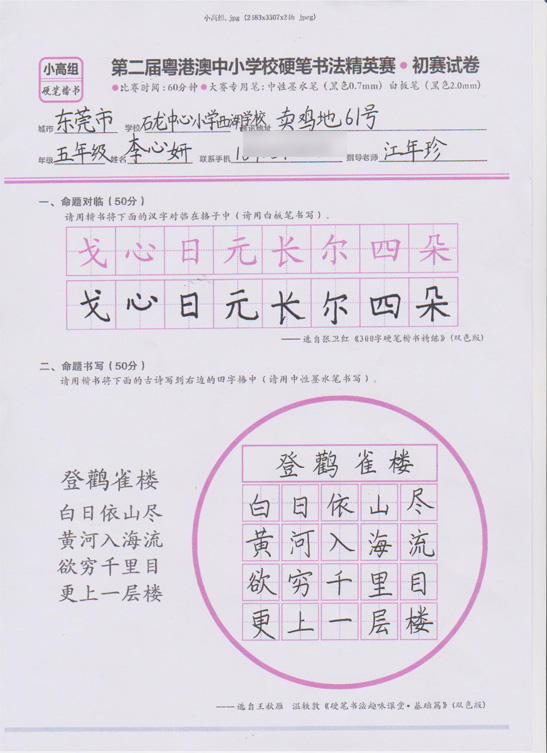 小高组.jpg (2483x3507x24b jpeg)
小高组
硬笔楷书
第二届粤港澳中小学校硬笔书法精英赛·初赛试卷
●比赛时间:60分钟●大赛专用笔:中性墨水笔(黑色0.7mm) 白板笔(黑色2.0mm)
城市 东莞市 学校 石龙中心小学西湖学校 通讯地址 卖鸡地61号
年级 五年级 姓名 李心妍 联系手机 指导老师 江年珍
一、命题对临(50分)
请用楷书将下面的汉字对临在格子中(请用白板笔书写)。
戈心日元长尔四朵
戈心日元长尔四朵
——选自张卫红《300字硬笔楷书精练》(双色版)
二、命题书写(50分)
请用楷书将下面的古诗写到右边的田字格中(请用中性墨水笔书写)。
登鹳雀楼
白日依山尽
黄河入海流
欲穷千里目
更上一层楼
登鹳雀楼
白日依山尽
黄河入海流
欲穷千里目
更上一层楼
——选自王秋雁 温轶敦《硬笔书法趣味课堂·基础篇》(双色版)